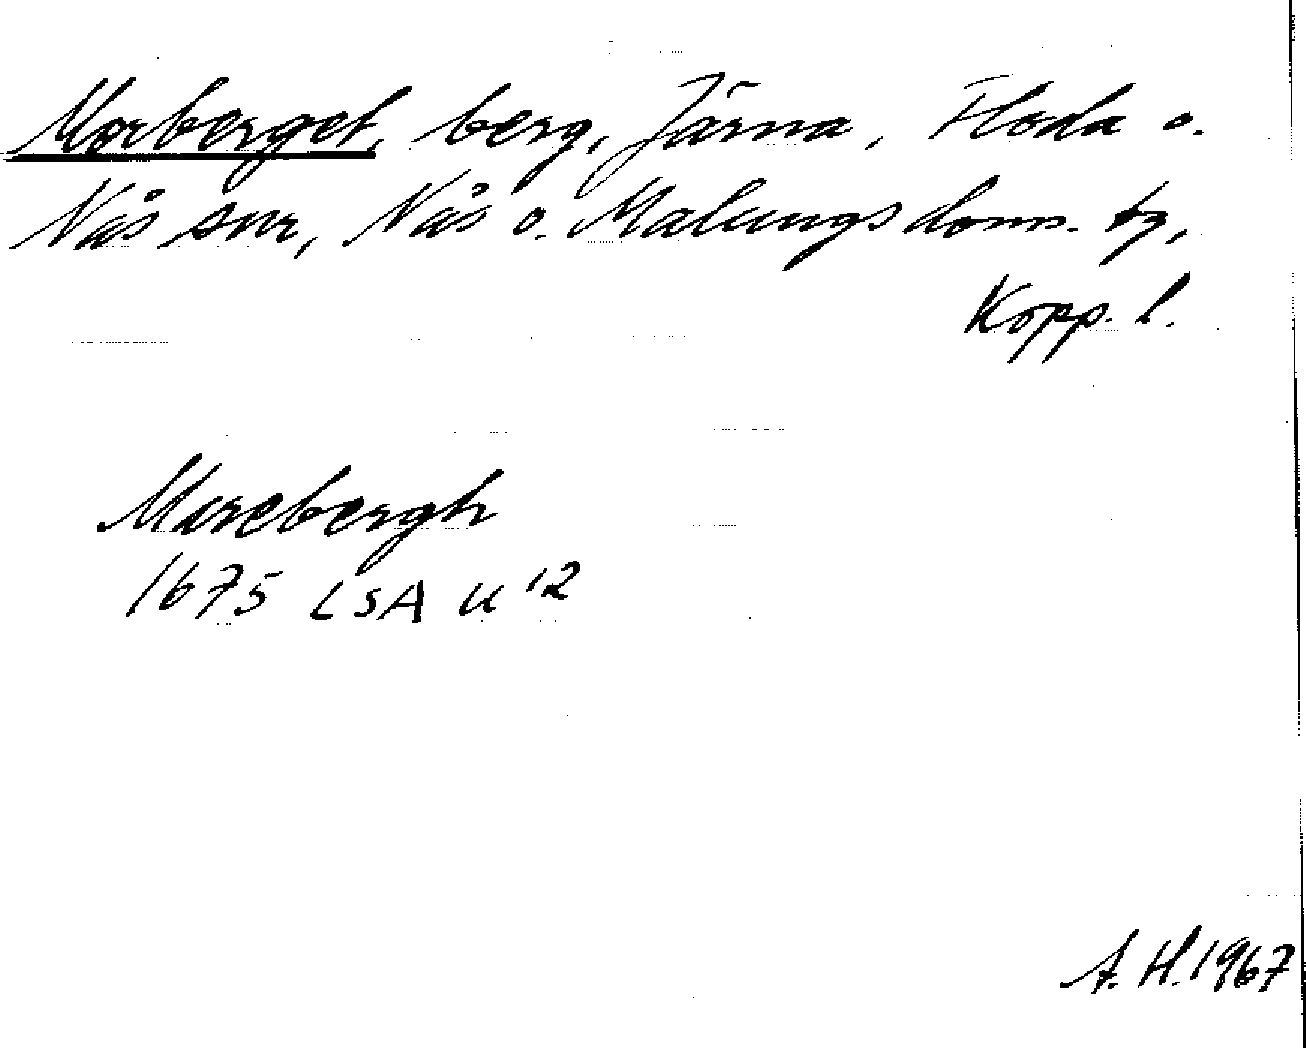 Morberget, berg, Järna, Floda o.
Nås snr, Nås o. Malungs doms. tg,
Kopp. l.
Morebergh
1675 LSA U 12
A. H. 1967